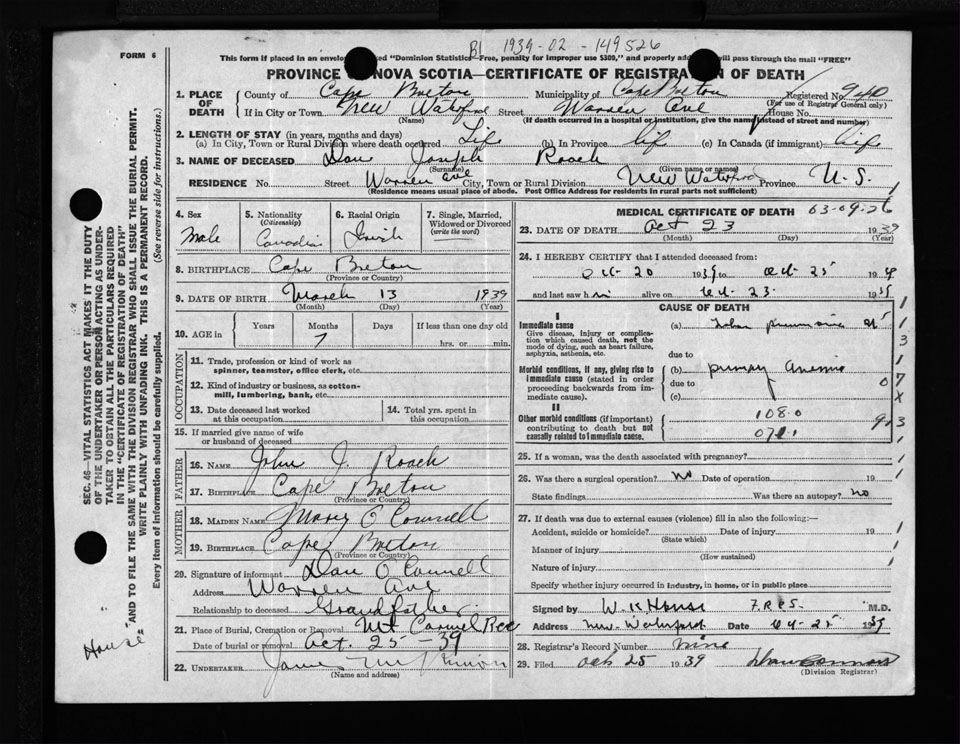 B1 1939-02-149526
FORM 6
This form if placed in an envelope marked "Dominion Statistics—Free, penalty for improper use $300," and properly addressed will pass through the mail "FREE"
PROVINCE OF NOVA SCOTIA—CERTIFICATE OF REGISTRATION OF DEATH
1. PLACE OF DEATH County of Cape Breton Municipality of Cape Breton Registered No. 940
(For use of Registrar General only)
If in City or Town New Waterford Street Warren Ave House No.
(Name) (If death occurred in a hospital or institution, give the name instead of street and number)
2. LENGTH OF STAY (in years, months and days)
(a) In City, Town or Rural Division where death occurred Life (b) In Province life (c) In Canada (if immigrant) life
3. NAME OF DECEASED Dan Joseph Roach
(Surname) (Given name or names)
RESIDENCE No. Street Warren ave City, Town or Rural Division New Waterford Province N.S.
(Residence means usual place of abode. Post Office Address for residents in rural parts not sufficient)
4. Sex Male
5. Nationality (Citizenship) Canadian
6. Racial Origin Irish
7. Single, Married, Widowed or Divorced (write the word)
8. BIRTHPLACE Cape Breton
(Province or Country)
9. DATE OF BIRTH March 13 1939
(Month) (Day) (Year)
10. AGE in Years Months 7 Days If less than one day old
hrs. or min.
OCCUPATION
11. Trade, profession or kind of work as spinner, teamster, office clerk, etc.
12. Kind of industry or business, as cotton-mill, lumbering, bank, etc.
13. Date deceased last worked at this occupation
14. Total yrs. spent in this occupation
15. If married give name of wife or husband of deceased
FATHER
16. NAME John J. Roach
17. Birthplace Cape Breton
(Province or Country)
MOTHER
18. MAIDEN NAME Mary O'Connell
19. BIRTHPLACE Cape Breton
(Province or Country)
20. Signature of informant Dan O'Connell
Address Warren Ave
Relationship to deceased Grandfather
21. Place of Burial, Cremation or Removal Mt Carmel
Date of burial or removal Oct. 25-39
22. UNDERTAKER James
(Name and address)
MEDICAL CERTIFICATE OF DEATH 63-09-26
23. DATE OF DEATH Oct 23 1939
(Month) (Day) (Year)
24. I HEREBY CERTIFY that I attended deceased from:
Oct-20 1939 to Oct-25 1939
and last saw him alive on Oct. 23 1939
CAUSE OF DEATH
I
Immediate cause
Give disease, injury or complication which caused death, not the mode of dying, such as heart failure, asphyxia, asthenia, etc.
(a) Lobar pneumonia
due to
Morbid conditions, if any, giving rise to immediate cause (stated in order proceeding backwards from immediate cause).
(b) primary Anemia
due to
(c)
II
Other morbid conditions (if important) contributing to death but not causally related to immediate cause.
108.0
071.1
25. If a woman, was the death associated with pregnancy?
26. Was there a surgical operation? No Date of operation 19
State findings Was there an autopsy? no
27. If death was due to external causes (violence) fill in also the following:—
Accident, suicide or homicide? Date of injury 19
(State which)
Manner of injury
(How sustained)
Nature of injury
Specify whether injury occurred in industry, in home, or in public place
Signed by M.D.
Address New Waterford Date Oct-25 1939
28. Registrar's Record Number nine
29. Filed Oct 25 1939
(Division Registrar)
SEC. 46—VITAL STATISTICS ACT MAKES IT THE DUTY OF THE UNDERTAKER OR PERSON ACTING AS UNDERTAKER TO OBTAIN ALL THE PARTICULARS REQUIRED IN THE "CERTIFICATE OF REGISTRATION OF DEATH"
"AND TO FILE THE SAME WITH THE DIVISION REGISTRAR WHO SHALL ISSUE THE BURIAL PERMIT.
WRITE PLAINLY WITH UNFADING INK. THIS IS A PERMANENT RECORD.
Every item of information should be carefully supplied. (See reverse side for instructions.)
House